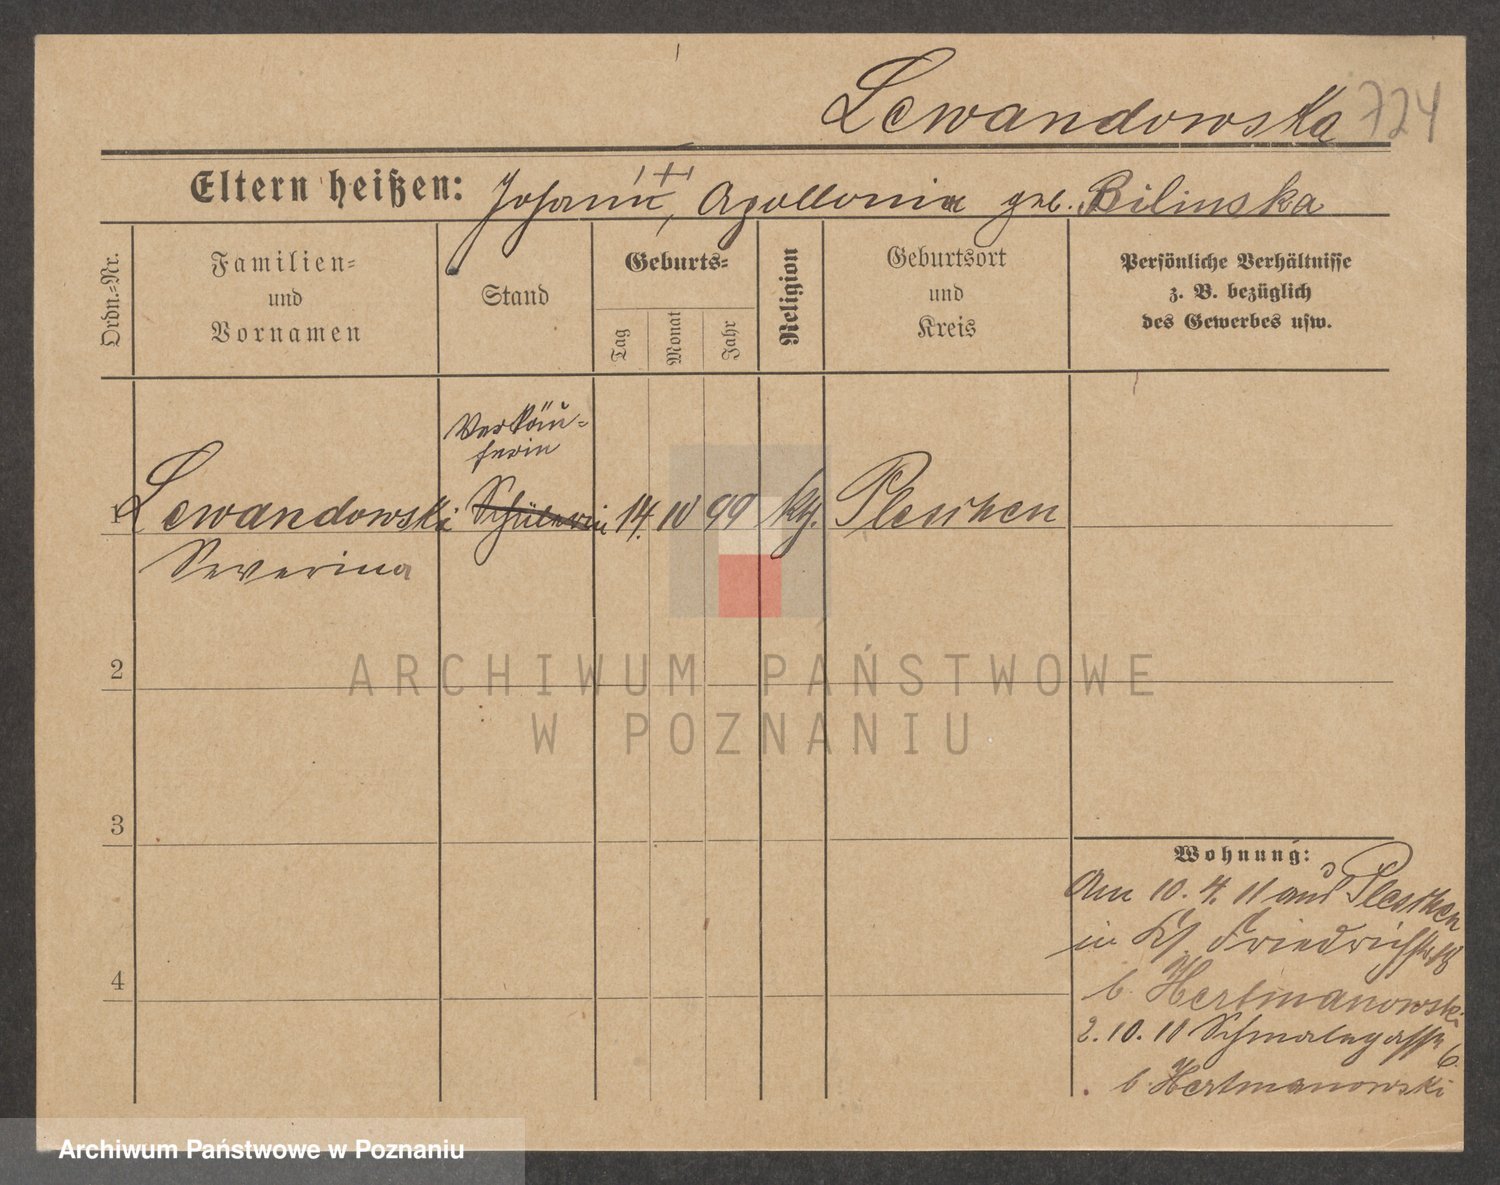 Lewandowska 724
Eltern heißen: Johann ✝, Apollonia geb. Bilinska
Ordn.-Nr.
Familien-
und
Vornamen
Stand
Geburts-
Tag
Monat
Jahr
Religion
Geburtsort
und
Kreis
Persönliche Verhältnisse
z. B. bezüglich
des Gewerbes usw.
Verkäu-
ferin
1 Lewandowski Schülerin 14. 10 99 kth. Pleschen
Severina
2
3
4
Wohnung:
Am 10. 4. 11 aus Pleschen
in Friedrichstr 18
b. Hertmanowski
2. 10. 11 Schmalegasse 6
b. Hertmanowski
ARCHIWUM PAŃSTWOWE
W POZNANIU
Archiwum Państwowe w Poznaniu